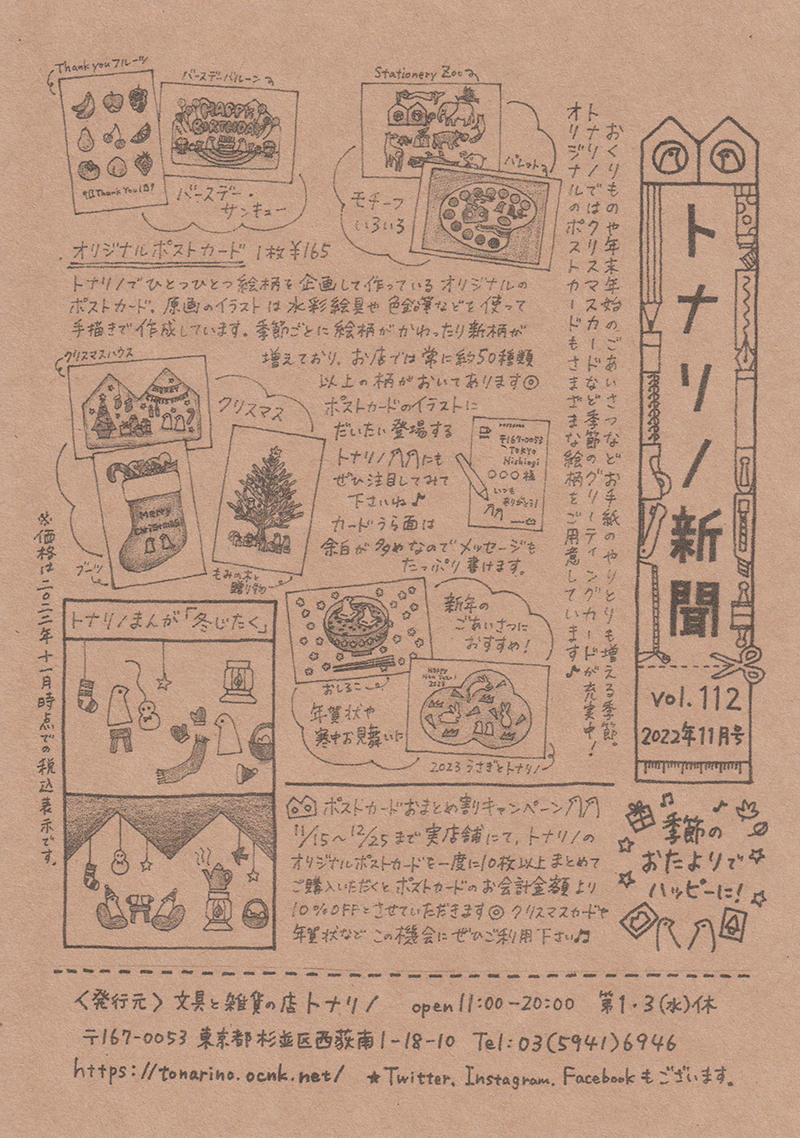 トナリノ新聞
vol.112
2022年11月号
おくりものや年末年始のごあいさつなどお手紙のやりとりも増える季節。
トナリノではクリスマスカードなど季節のグリーティングカードが充実中！
オリジナルのポストカードもさまざまな絵柄をご用意しています♪
Thank you フルーツ
バースデーバルーン
Stationery Zoo
パレット
HAPPY
BIRTHDAY
Thank You
バースデー・
サンキュー
モチーフ
いろいろ
オリジナルポストカード 1枚¥165
トナリノでひとつひとつ絵柄を企画して作っているオリジナルの
ポストカード。原画のイラストは水彩絵具や色鉛筆などを使って
手描きで作成しています。季節ごとに絵柄がかわったり新柄が
増えており、お店では常に約50種類
以上の柄がおいてあります◎
ポストカードのイラストに
だいたい登場する
トナリノ
にも
ぜひ注目してみて
下さいね♪
カードうら面は
余白が多めなのでメッセージも
たっぷり書けます。
クリスマスハウス
MERRY
CHRISTMAS
クリスマス
Merry
Christmas
ブーツ
もみの木と
贈り物
〒167-0053
TOKYO
Nishiogi
○○○様
いつも
ありがとう！
新年の
ごあいさつに
おすすめ！
おしるこ
年賀状や
寒中お見舞いに
HAPPY
New Year!
2023
2023うさぎとトナリノ
※価格は二〇二二年十一月時点での税込表示です。
トナリノまんが「冬じたく」
ポストカードおまとめ割キャンペーン
11/15〜12/25まで実店舗にて、トナリノの
オリジナルポストカードを一度に10枚以上まとめて
ご購入いただくとポストカードのお会計金額より
10%OFFとさせていただきます◎クリスマスカードや
年賀状などこの機会にぜひご利用下さい♫
季節の
おたよりで
ハッピーに！
〈発行元〉文具と雑貨の店トナリノ open11:00-20:00 第1・3(水)休
〒167-0053 東京都杉並区西荻南1-18-10 Tel:03(5941)6946
https://tonarino.ocnk.net/ ★Twitter、Instagram、Facebookもございます。